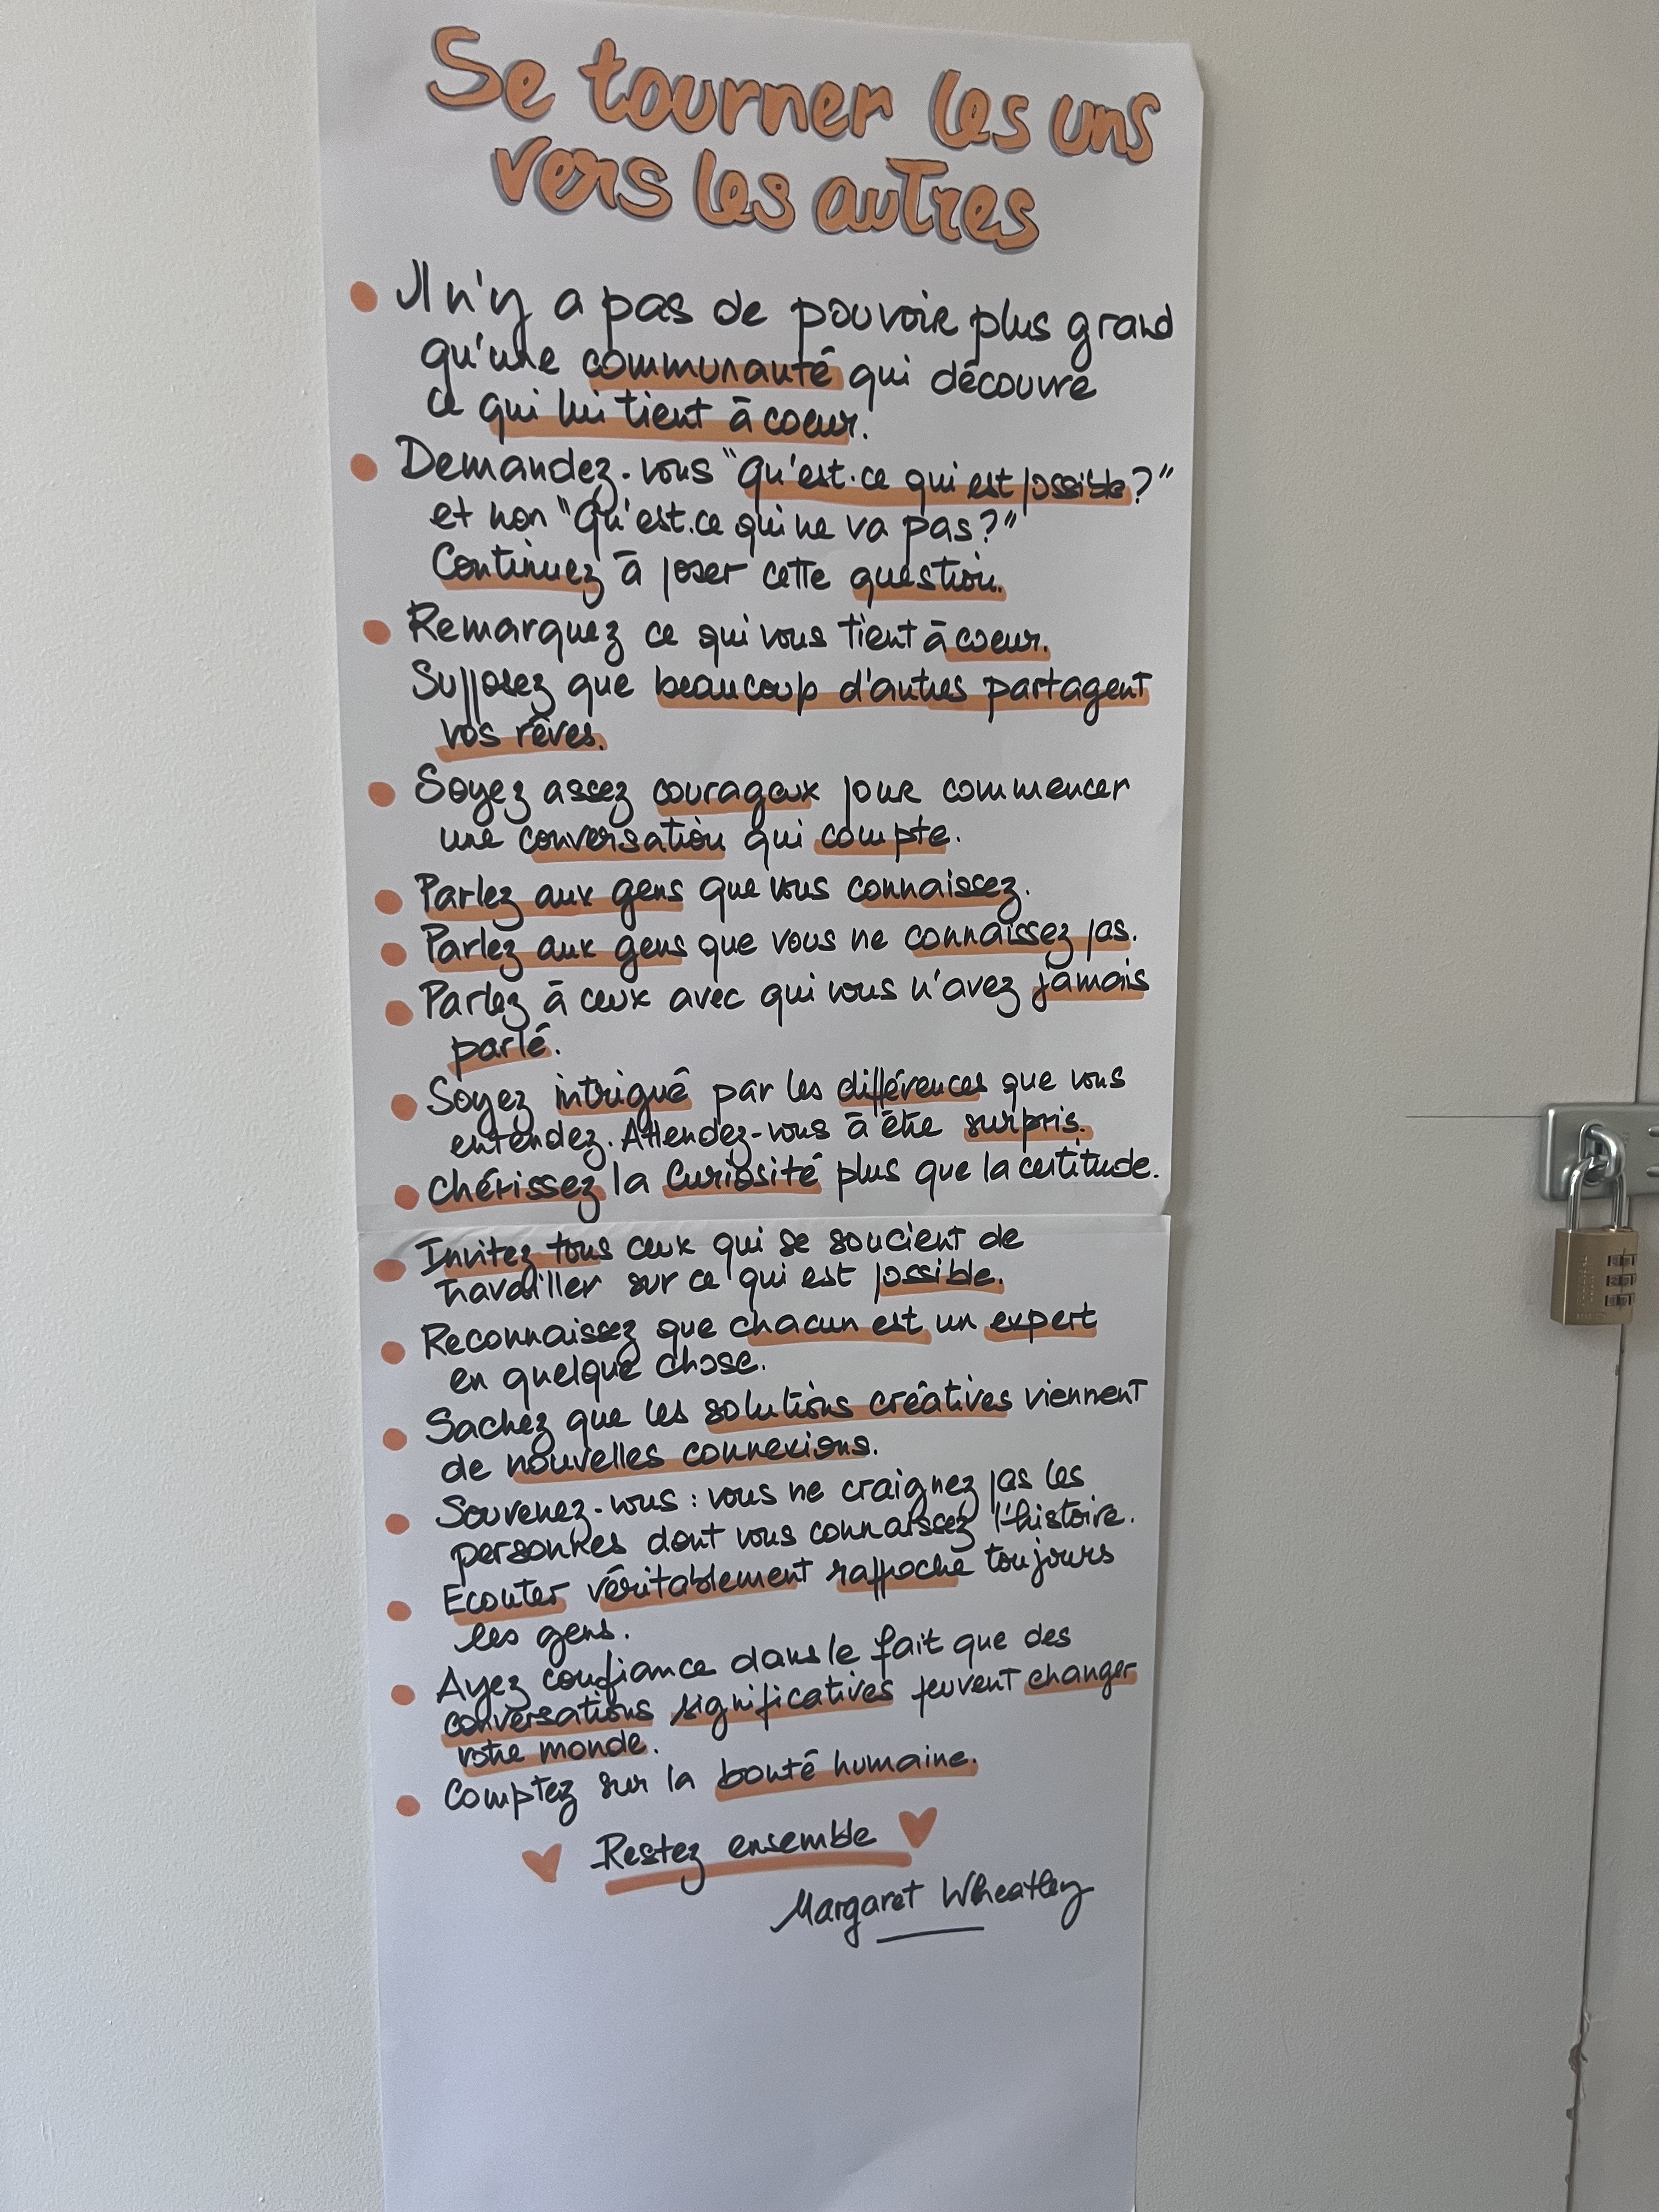 Se tourner les uns
vers les autres
Il n'y a pas de pouvoir plus grand
qu'une communauté qui découvre
ce qui lui tient à coeur.
Demandez-vous "Qu'est-ce qui est possible?"
et non "Qu'est-ce qui ne va pas?"
Continuez à poser cette question.
Remarquez ce qui vous tient à coeur.
Supposez que beaucoup d'autres partagent
vos rêves.
Soyez assez courageux pour commencer
une conversation qui compte.
Parlez aux gens que vous connaissez.
Parlez aux gens que vous ne connaissez pas.
Parlez à ceux avec qui vous n'avez jamais
parlé.
Soyez intrigué par les différences que vous
entendez. Attendez-vous à être surpris.
Chérissez la Curiosité plus que la certitude.
Invitez tous ceux qui se soucient de
travailler sur ce qui est possible.
Reconnaissez que chacun est un expert
en quelque chose.
Sachez que les solutions créatives viennent
de nouvelles connexions.
Souvenez-vous : vous ne craignez pas les
personnes dont vous connaissez l'histoire.
Ecouter véritablement rapproche toujours
les gens.
Ayez confiance dans le fait que des
conversations significatives peuvent changer
votre monde.
Comptez sur la bonté humaine.
Restez ensemble
Margaret Wheatley